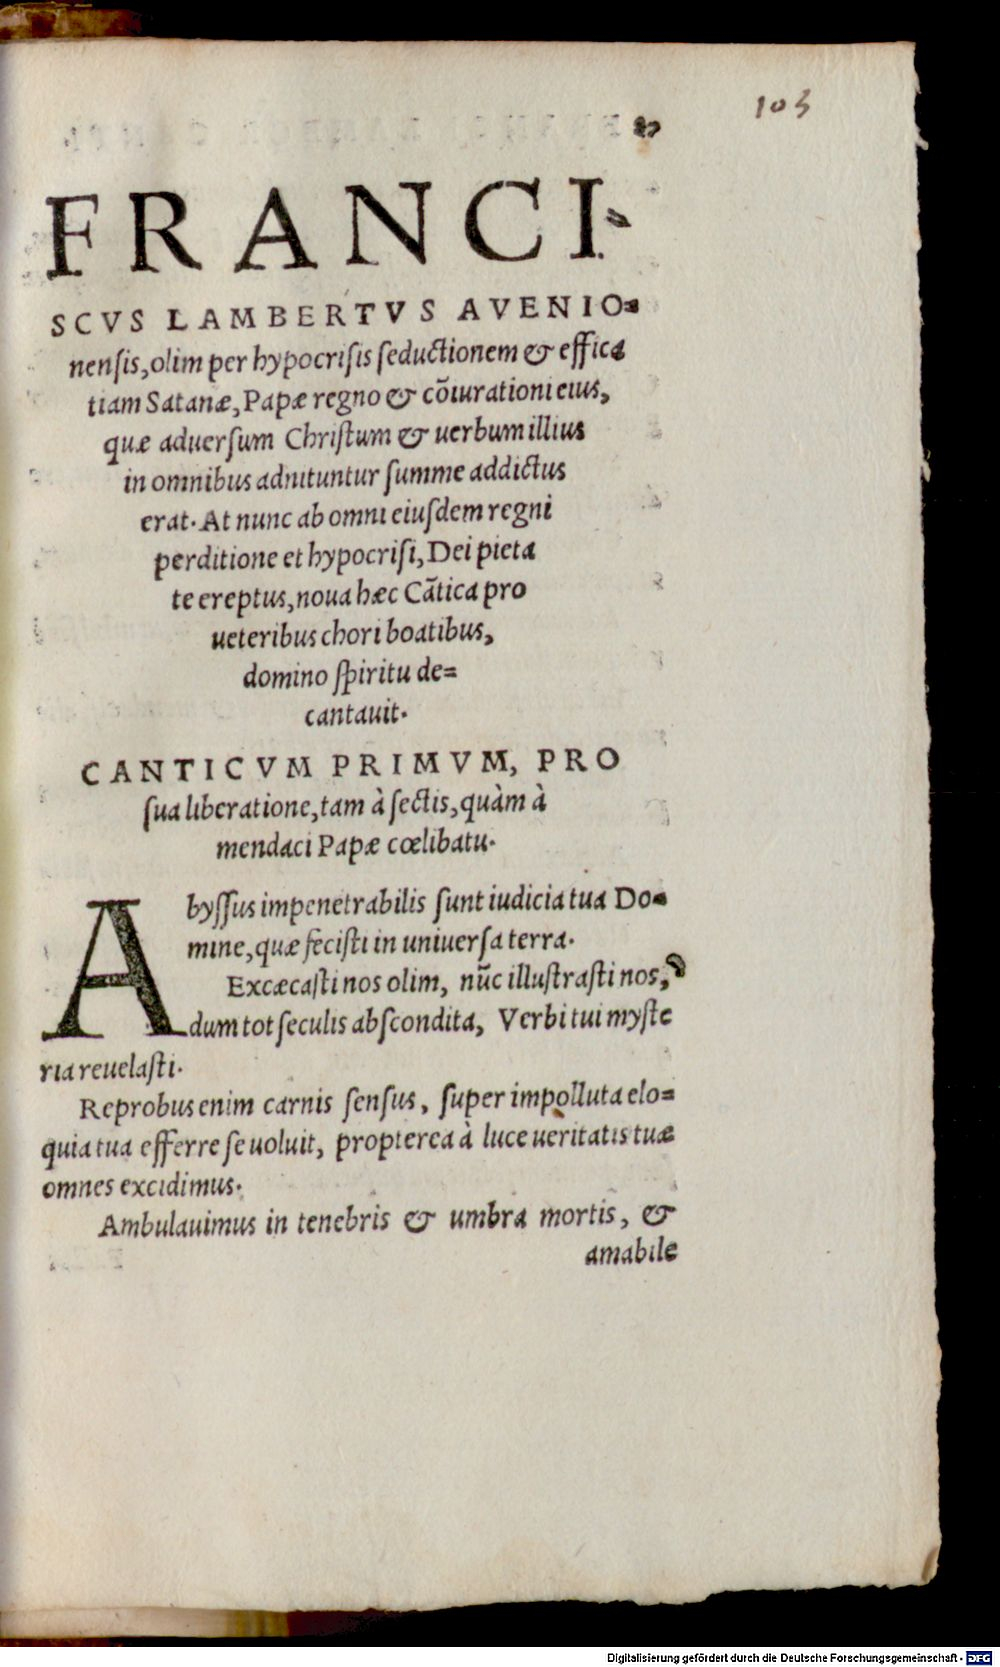 103
FRANCI
SCVS LAMBERTVS AVENIO=
nensis, olim per hypocrisis seductionem & effica
tiam Satanæ, Papæ regno & cõiurationi eius,
quæ aduersum Christum & uerbum illius
in omnibus adnituntur summe addictus
erat. At nunc ab omni eiusdem regni
perditione et hypocrisi, Dei pieta
te ereptus, noua hæc Cãtica pro
ueteribus chori boatibus,
domino spiritu de=
cantauit.
CANTICVM PRIMVM, PRO
sua liberatione, tam à sectis, quàm à
mendaci Papæ cœlibatu.
Abyssus impenetrabilis sunt iudicia tua Do=
mine, quæ fecisti in uniuersa terra.
Excæcasti nos olim, nũc illustrasti nos,
dum tot seculis abscondita, Verbi tui myste
ria reuelasti.
Reprobus enim carnis sensus, super impolluta elo=
quia tua efferre se uoluit, propterea à luce ueritatis tuæ
omnes excidimus.
Ambulauimus in tenebris & umbra mortis, &
amabile
Digitalisierung gefördert durch die Deutsche Forschungsgemeinschaft - DFG